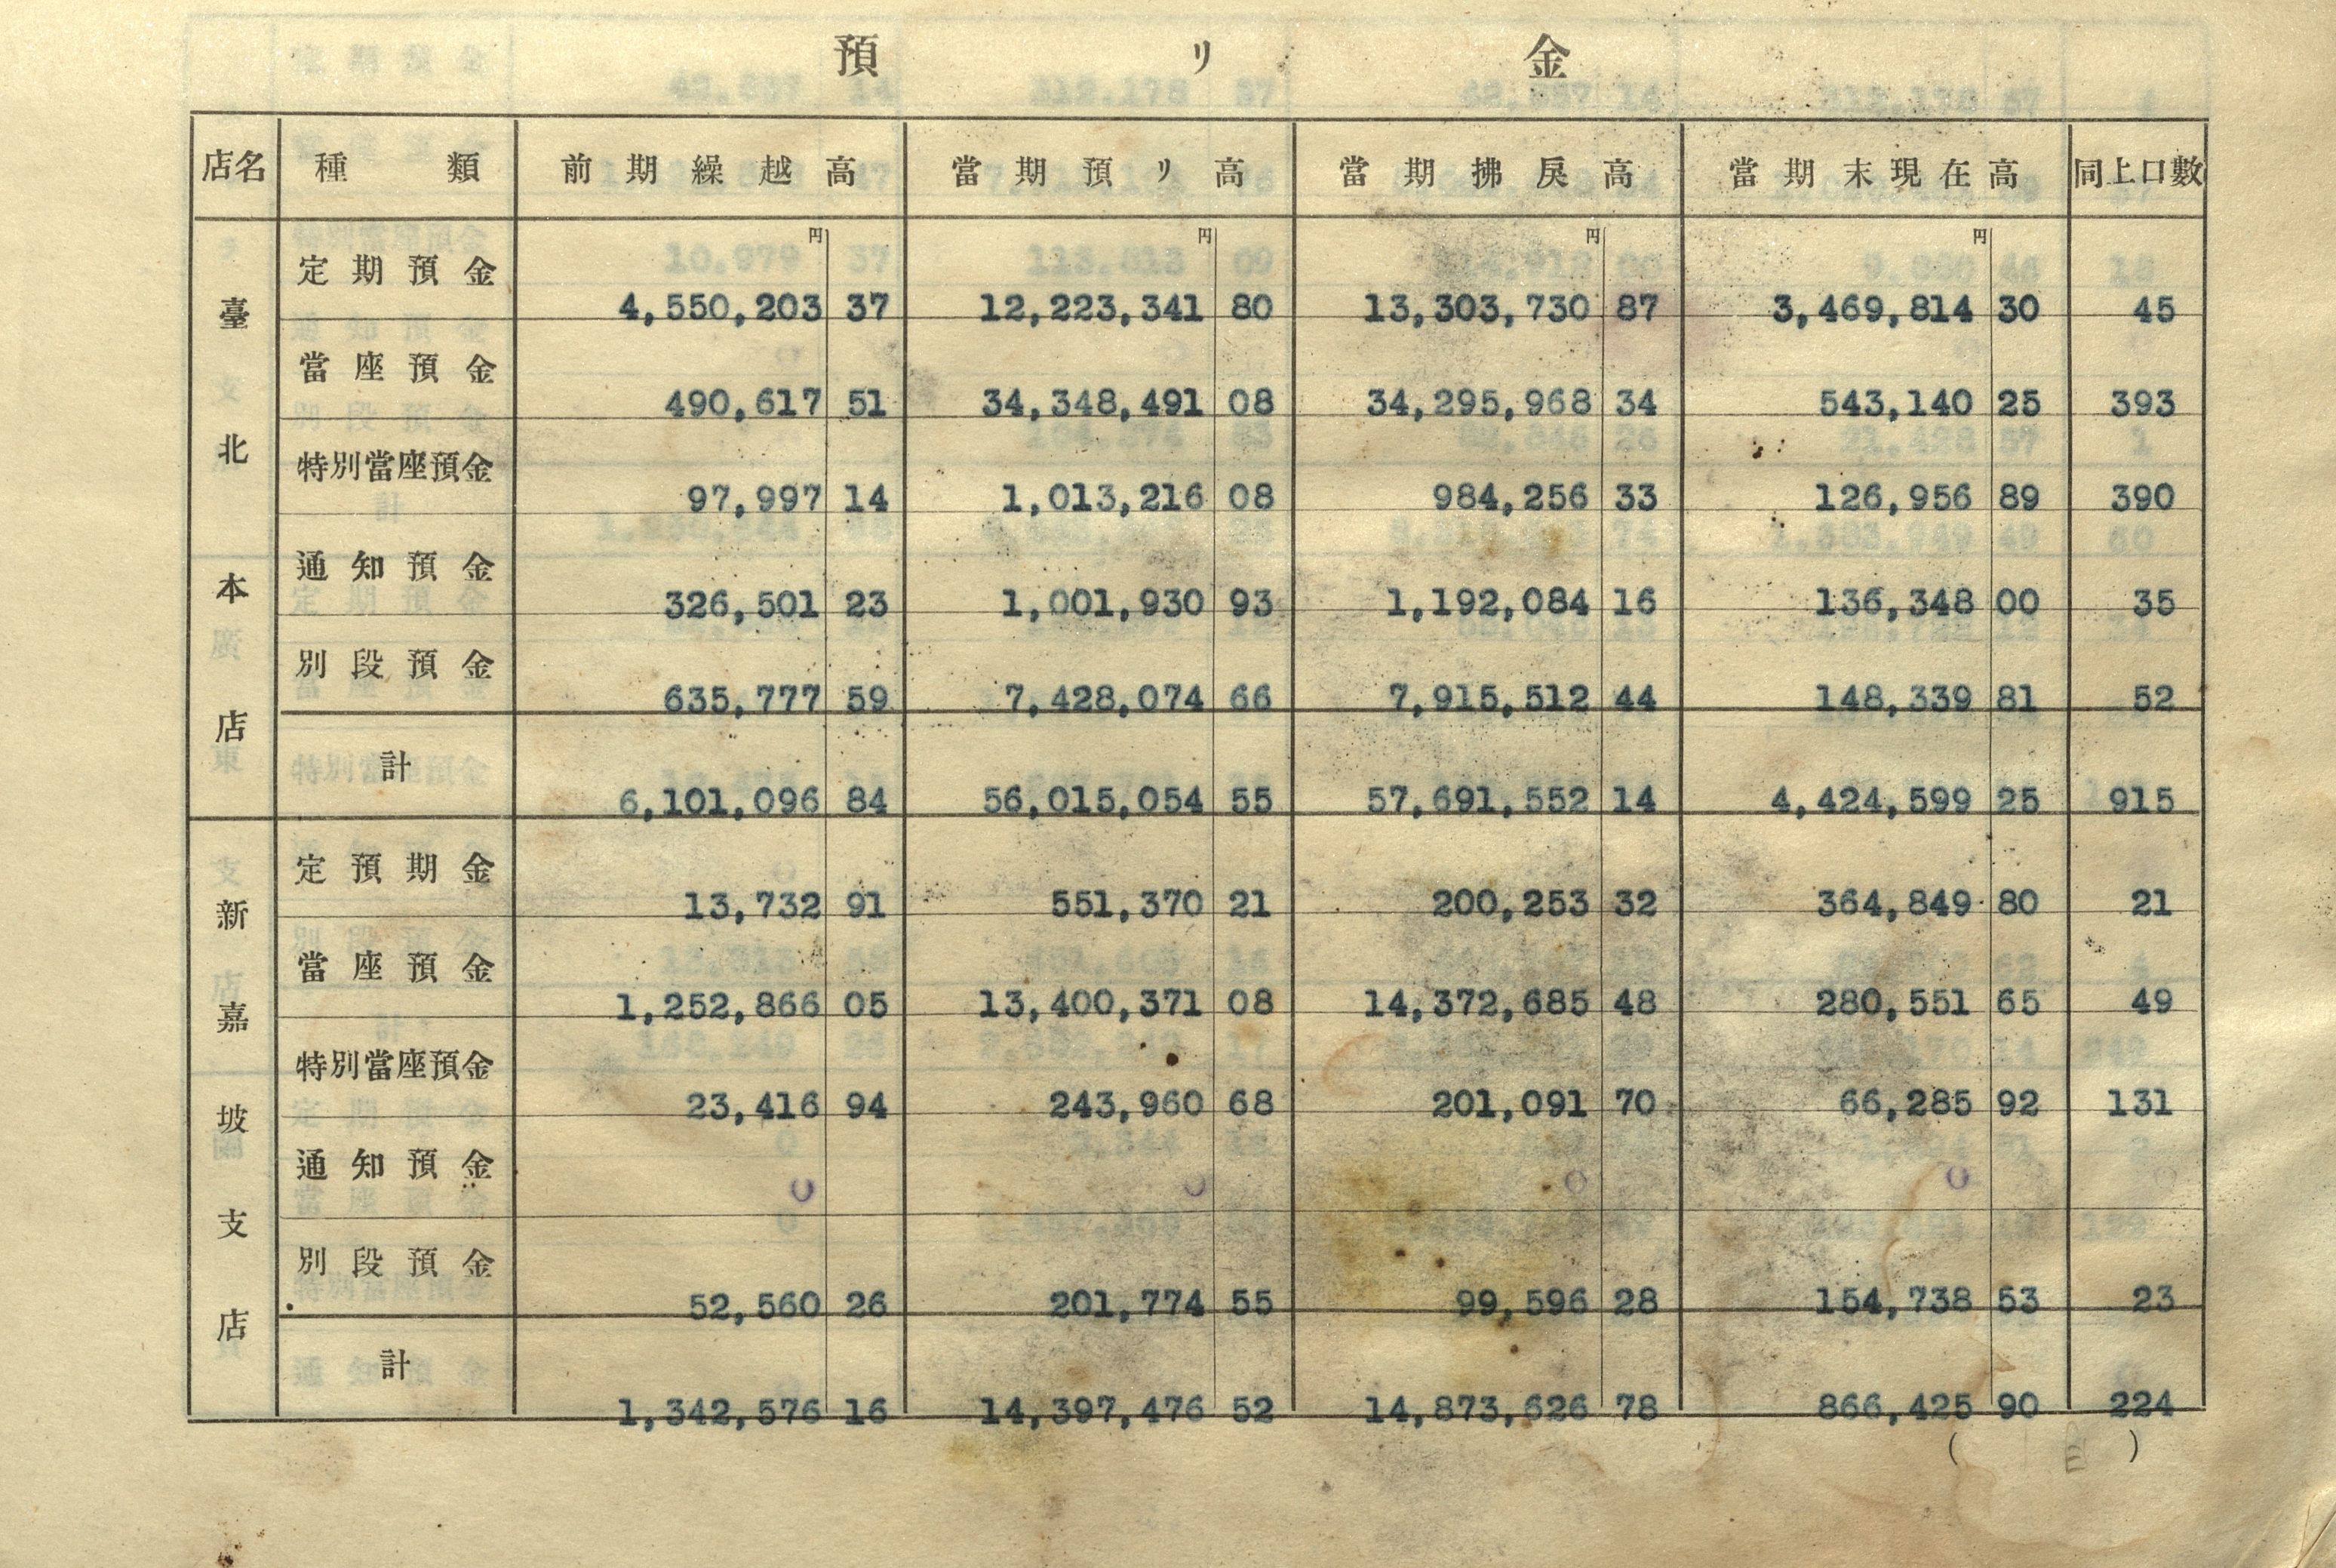 預リ金
店名 種類 前期繰越高 當期預リ高 當期拂戻高 當期末現在高 同上口數
円 円 円 円
臺北本店
定期預金 4,550,203 37 12,223,341 80 13,303,730 87 3,469,814 30 45
當座預金 490,617 51 34,348,491 08 34,295,968 34 543,140 25 393
特別當座預金 97,997 14 1,013,216 08 984,256 33 126,956 89 390
通知預金 326,501 23 1,001,930 93 1,192,084 16 136,348 00 35
別段預金 635,777 59 7,428,074 66 7,915,512 44 148,339 81 52
計 6,101,096 84 56,015,054 55 57,691,552 14 4,424,599 25 915
新嘉坡支店
定預期金 13,732 91 551,370 21 200,253 32 364,849 80 21
當座預金 1,252,866 05 13,400,371 08 14,372,685 48 280,551 65 49
特別當座預金 23,416 94 243,960 68 201,091 70 66,285 92 131
通知預金 0 0 0 0 0
別段預金 52,560 26 201,774 55 99,596 28 154,738 53 23
計 1,342,576 16 14,397,476 52 14,873,626 78 866,425 90 224
( )